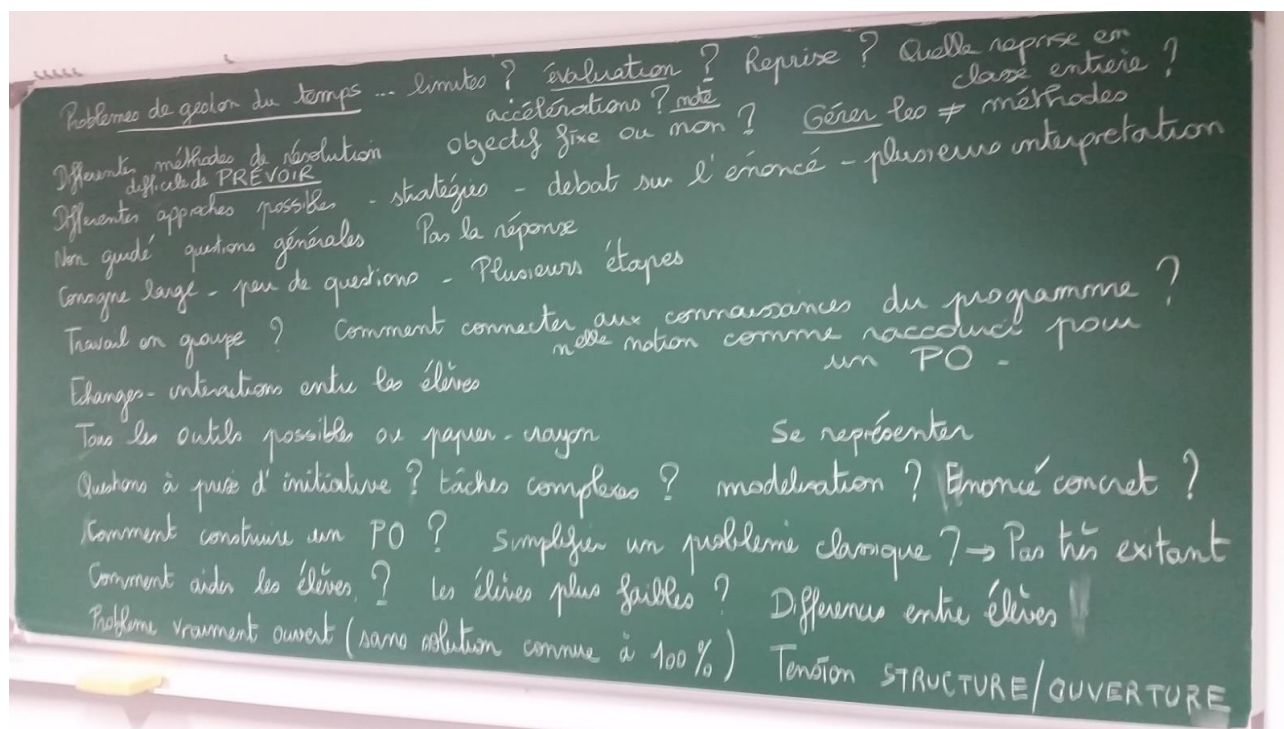 Problèmes de gestion du temps ... limites ? évaluation ? Reprise ? Quelle reprise en
classe entière ?
accélérations ? note
Différentes méthodes de résolution objectif fixe ou non ? Gérer les ≠ méthodes
difficile de PRÉVOIR
Différentes approches possibles - stratégies - debat sur l'énoncé - plusieurs interpretation
Non guidé questions générales Pas la réponse
Consigne large - peu de questions - Plusieurs étapes
Travail en groupe ? Comment connecter aux connaissances du programme ?
nelle notion comme raccourci pour
un PO -
Echanges - interactions entre les élèves
Tous les outils possibles ou papier-crayon Se représenter
Questions à prise d'initiative ? tâches complexes ? modelisation ? Enoncé concret ?
Comment construire un PO ? Simplifier un problème classique ? → Pas très exitant
Comment aider les élèves ? les élèves plus faibles ? Differences entre élèves
Problème vraiment ouvert (sans solution connue à 100 %) Tension STRUCTURE/OUVERTURE